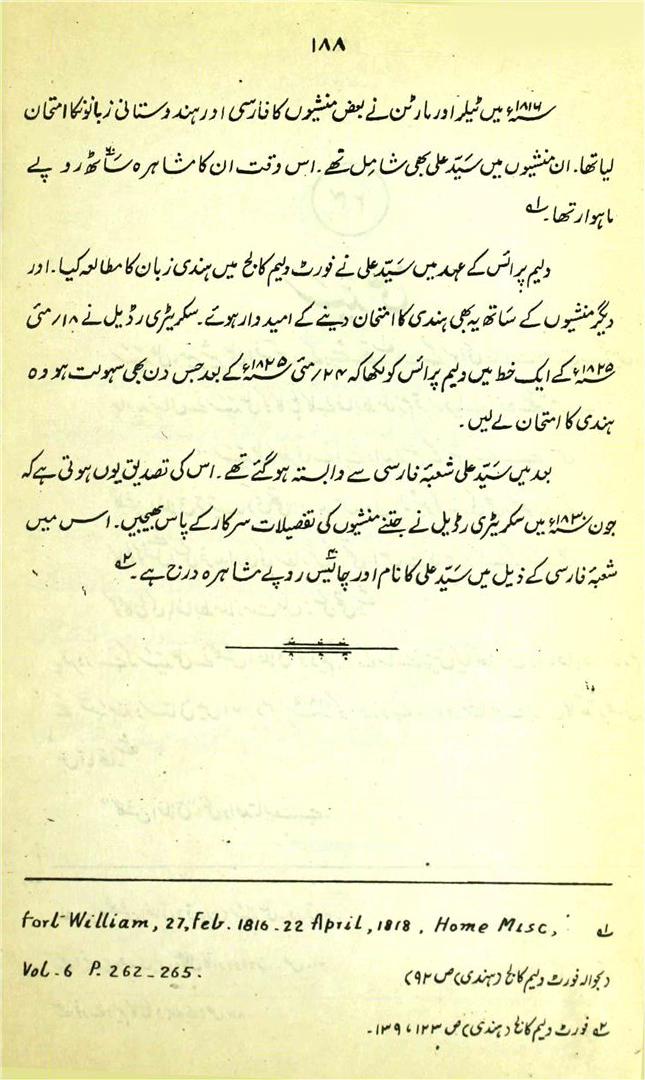 ۱۸۸
۱۸۱۶ء میں ٹیلر اور مارٹن نے بعض منشیوں کا فارسی اور ہندوستانی زبانوں کا امتحان
لیا تھا۔ ان منشیوں میں سیّد علی بھی شامل تھے۔ اس وقت ان کا مشاہرہ ساٹھ روپے
ماہوار تھا۔ ۱ے
ولیم پرائس کے عہد میں سیّد علی نے فورٹ ولیم کالج میں ہندی زبان کا مطالعہ کیا۔ اور
دیگر منشیوں کے ساتھ یہ بھی ہندی کا امتحان دینے کے امیدوار ہوئے۔ سکریٹری رڈیل نے ۱۸؍مئی
۱۸۲۵ء کے ایک خط میں ولیم پرائس کو لکھا کہ ۲۴؍مئی ۱۸۲۵ء کے بعد جس دن بھی سہولت ہو وہ
ہندی کا امتحان لے لیں۔
بعد میں سیّد علی شعبۂ فارسی سے وابستہ ہو گئے تھے۔ اس کی تصدیق یوں ہوتی ہے کہ
جون ۱۸۳۰ء میں سکریٹری رڈیل نے جتنے منشیوں کی تفصیلات سرکار کے پاس بھیجیں۔ اس میں
شعبۂ فارسی کے ذیل میں سیّد علی کا نام اور چالیس روپے مشاہرہ درج ہے۔ ۲ے
۱ے Fort William, 27, Feb. 1816-22 April, 1818, Home Misc,
Vol-6 P. 262-265. (بحوالہ فورٹ ولیم کالج (ہندی) ص ۹۲)
۲ے فورٹ ولیم کالج (ہندی) ص ۱۲۳، ۱۳۹۔